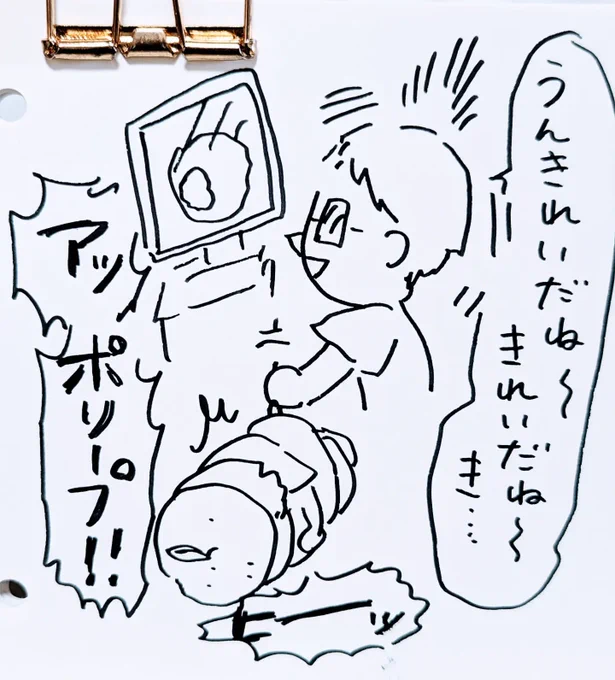 うんきれいだね〜
きれいだね〜
き…
アッ
ポリープ!!
ピーッ